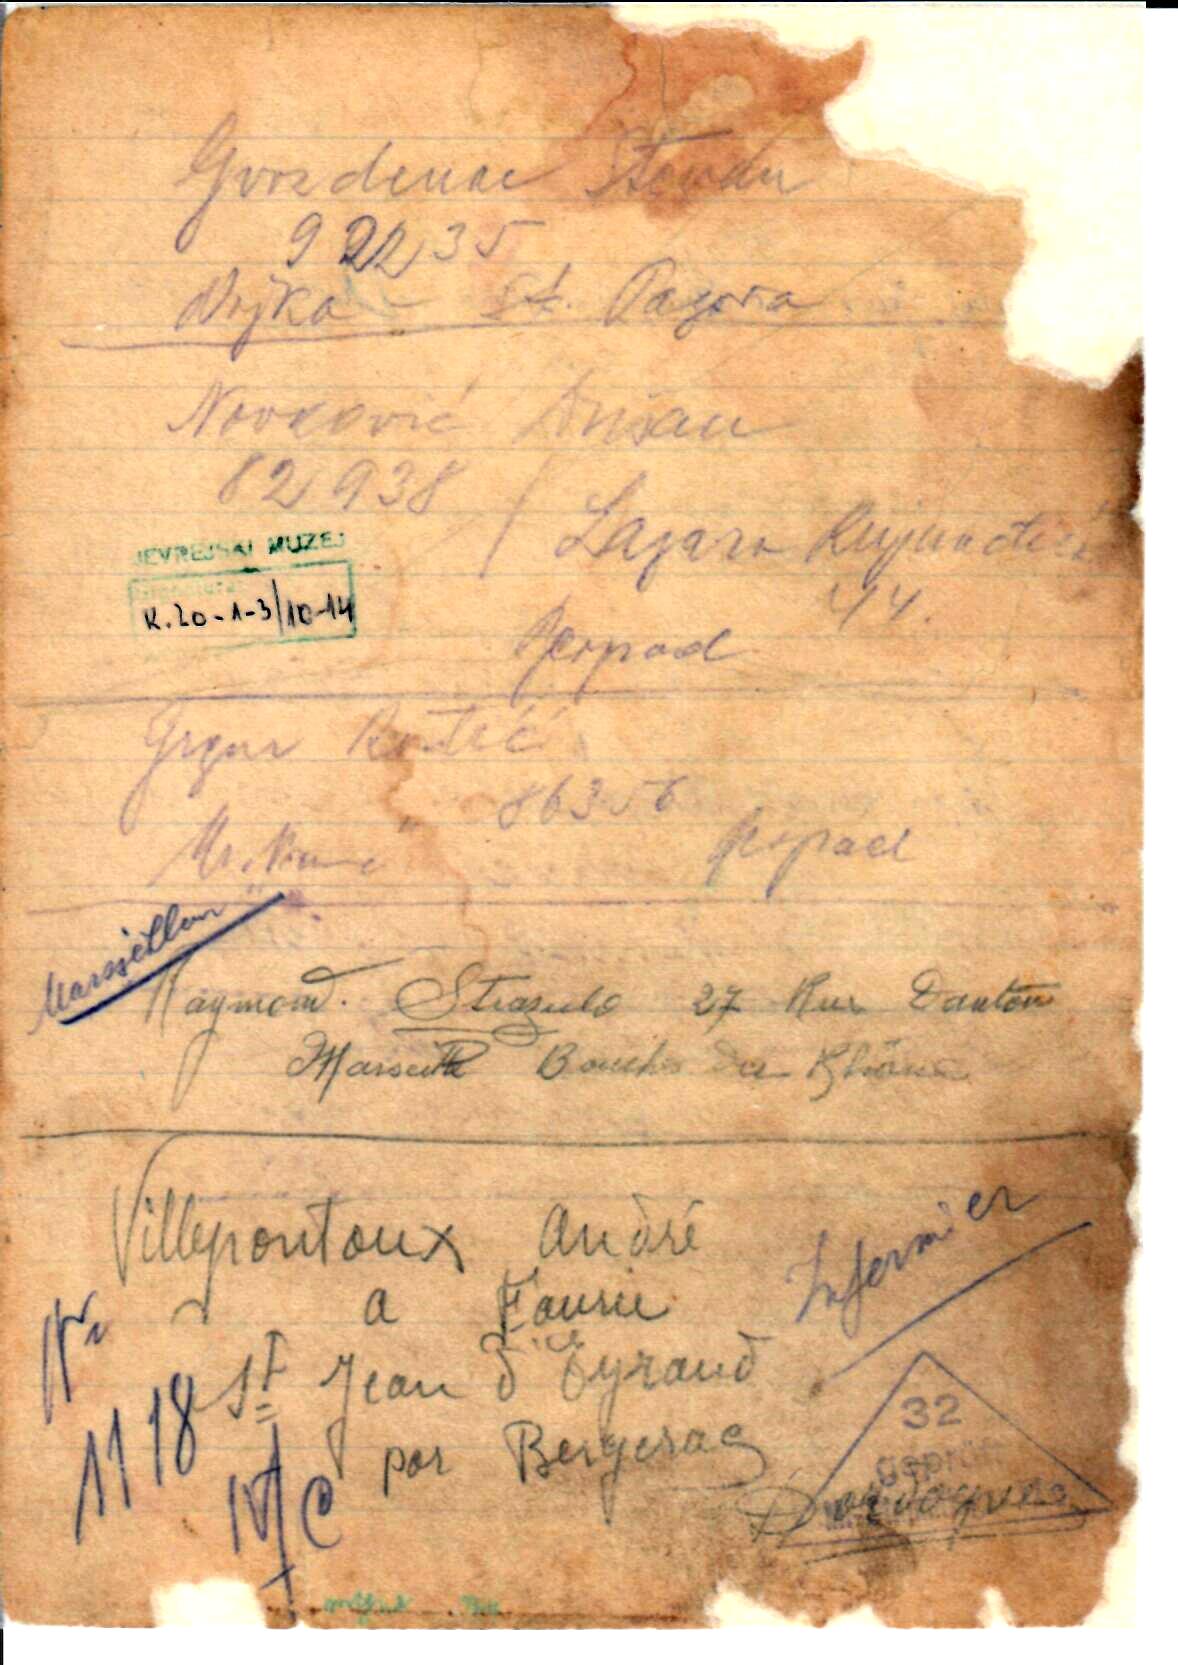 Gvozdenac Stevan
92235
Vojka - St. Pazova
Novković Dušan
82938
Lazara
44.
JEVREJSKI MUZEJ
K.20-1-3/10-14
Beograd
Grgur
86356
Beograd
Raymond. Strazulo 27 Rue Danton
Marseille Bouches du Rhône
Villepontoux André
Infermier
a Faurie
St Jean d'Eyraud
Nr
1118
IV/C
par Bergerac
32
gepr
Dordogne